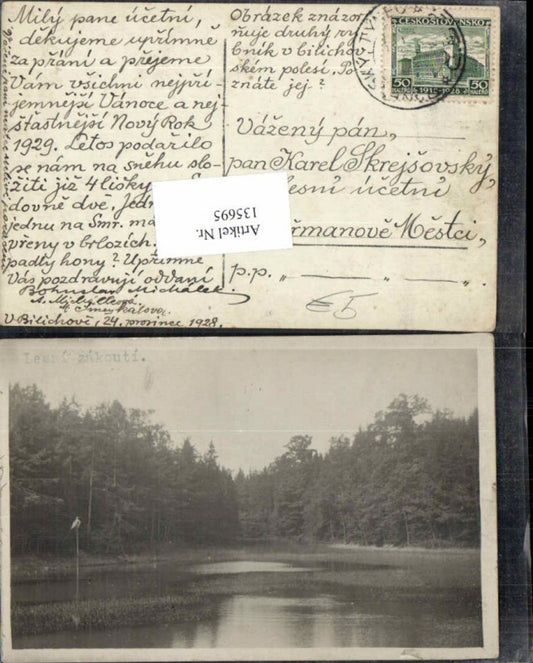 Milý pane účetní,
děkujeme upřímně
za přání a přejeme
Vám všichni nejpří-
jemnější Vánoce a nej-
šťastnější Nový Rok
1929. Letos podařilo
se nám na sněhu slo-
žiti již 4 lišky,
dovně dvě. Jed
jednu na Smr. ma
vřeny v brlozích.
padty hony? Upřímně
Vás pozdravují oddaní
Bohuslav Michálek
V Bilichově, 24. prosince 1928.
Obrázek znázor-
ňuje druhý ry-
bník v bilichov-
ském polesí. Po-
znáte jej?
ČESKOSLOVENSKO
50 1918-1928 50
Vážený pán,
pan Karel Skrejšovský,
lesní účetní
eřmanově Městci,
p.p.
Artikel Nr.
135695
€5
Lesní zákoutí.